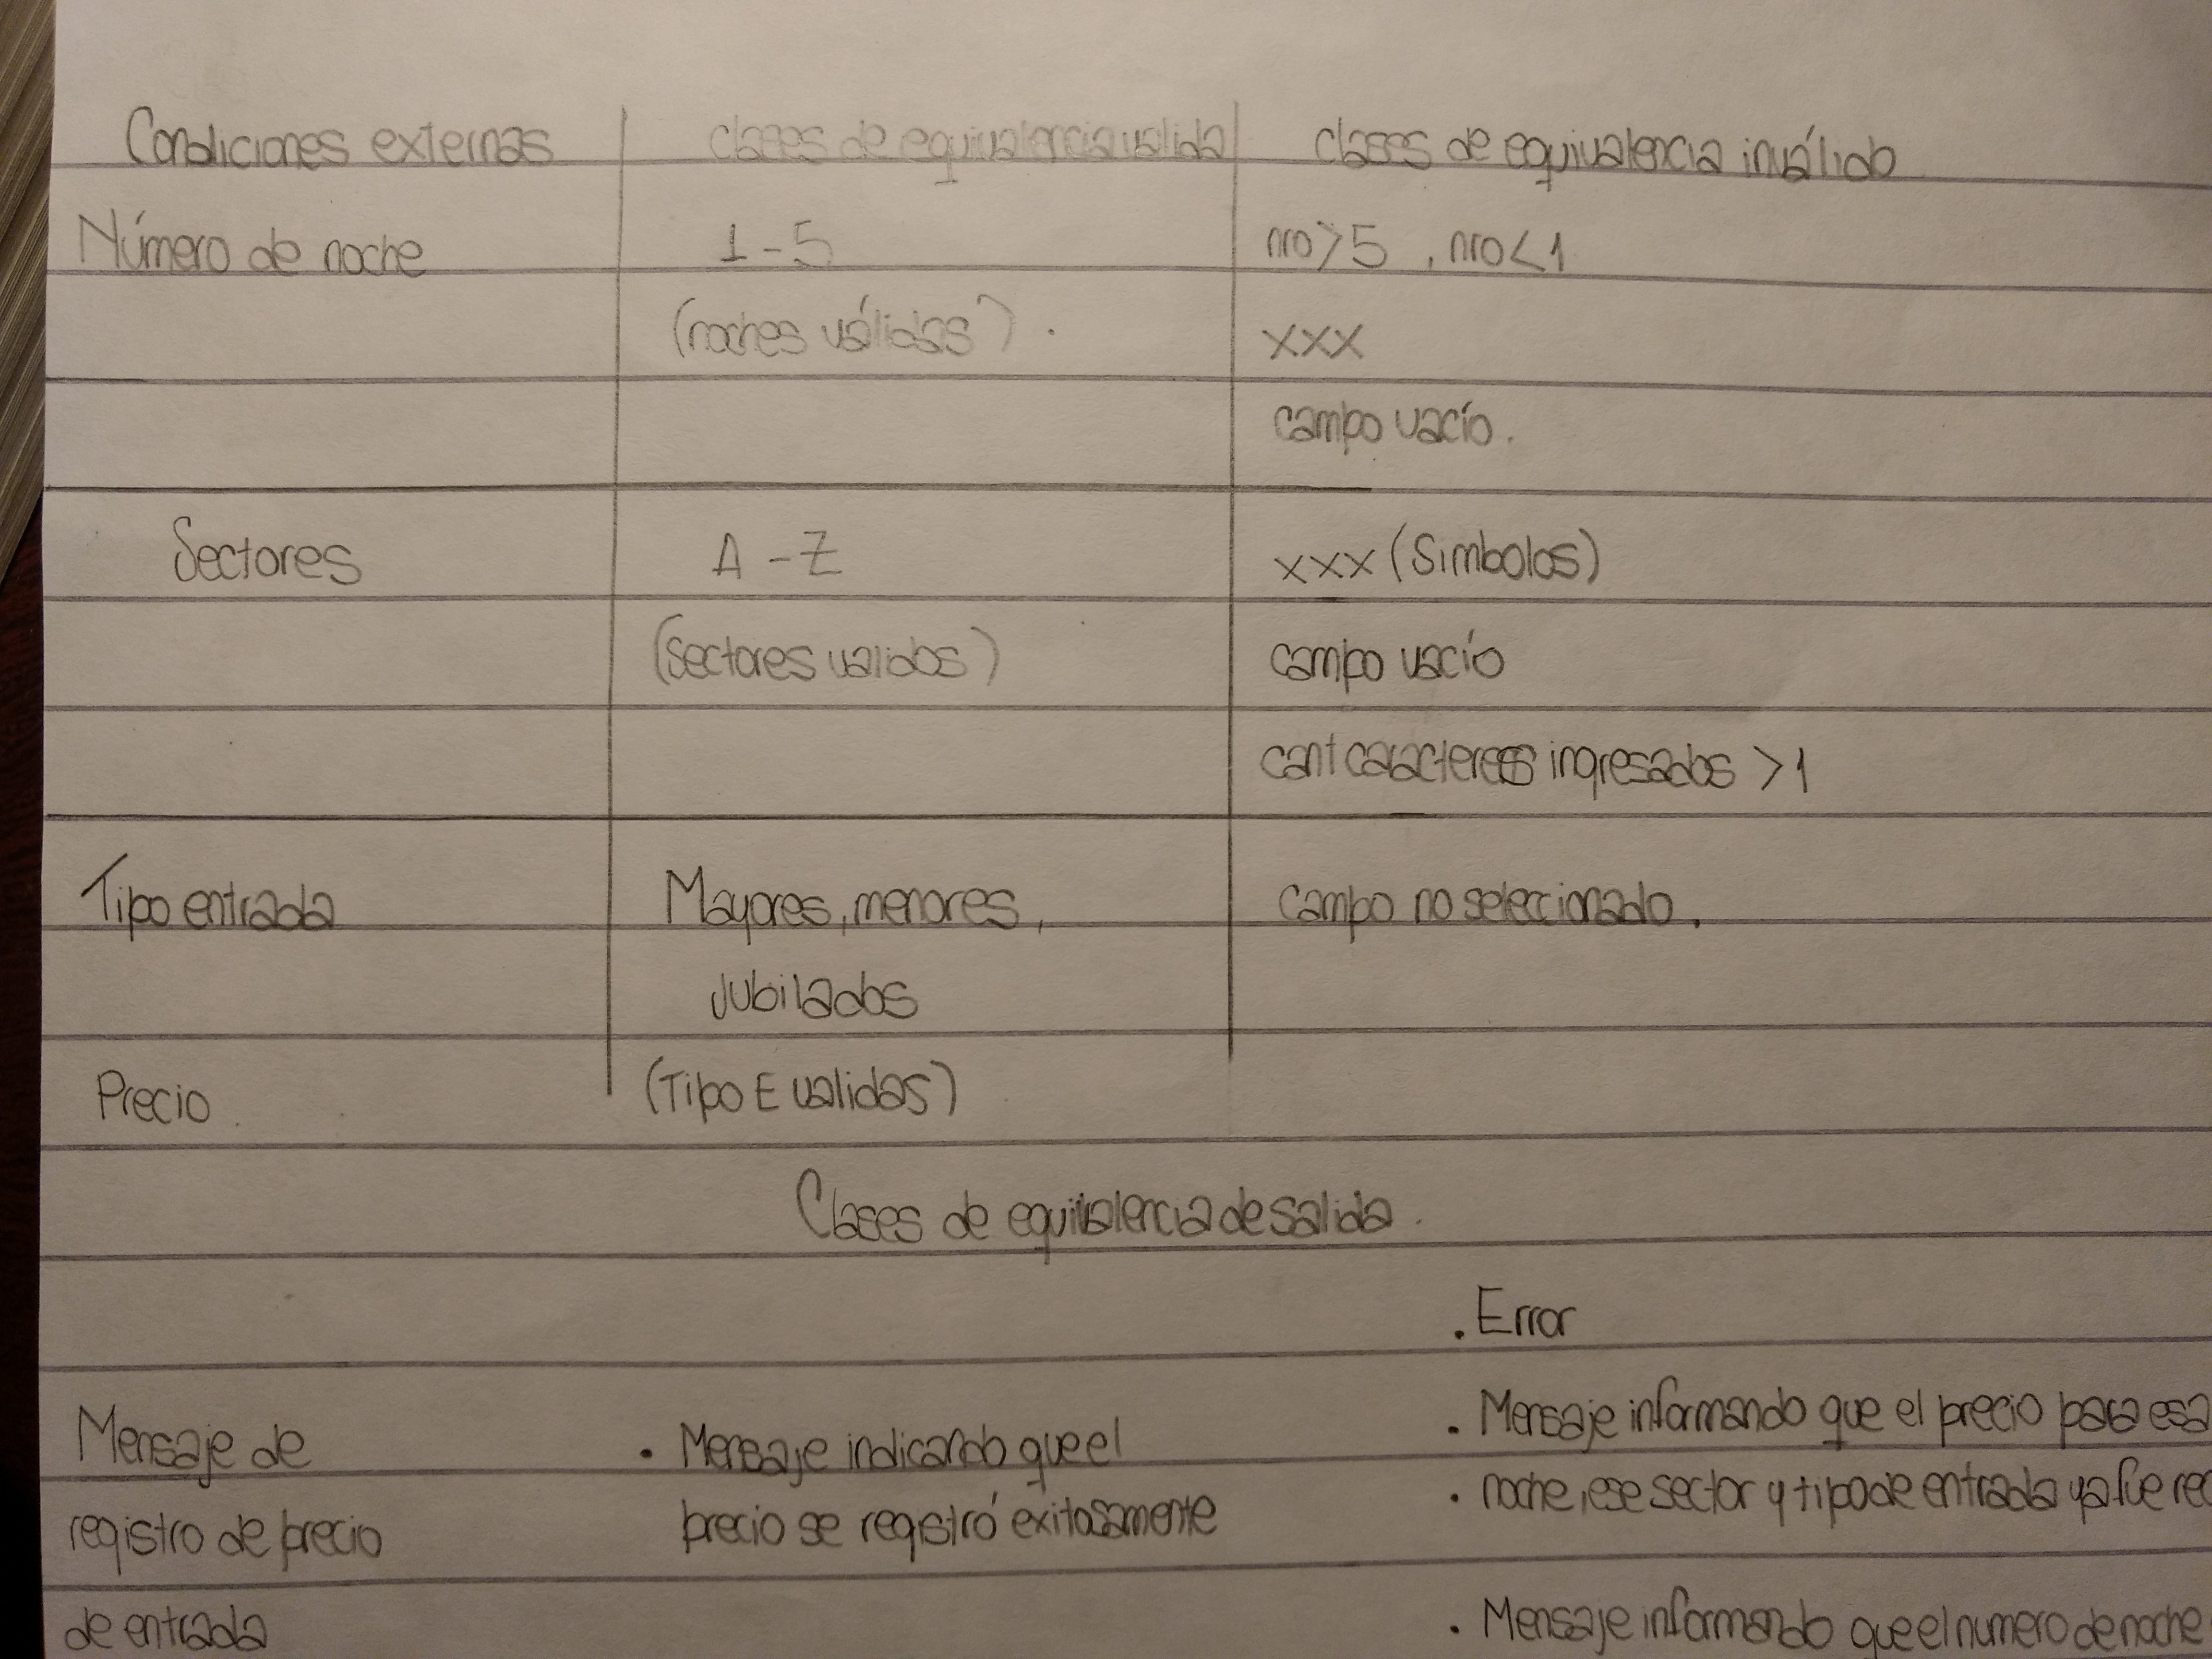 Condiciones externas clases de equivalencia valida clases de equivalencia inválido
Número de noche 1-5 nro>5 , nro<1
(noches válidas). xxx
campo vacío.
Sectores A-Z xxx (Simbolos)
(Sectores validos) campo vacío
cant caracteres ingresados >1
Tipo entrada Mayores, menores, campo no seleccionado.
Jubilados
Precio. (Tipo E validas)
Clases de equivalencia de salida.
. Error
Mensaje de . Mensaje indicando que el . Mensaje informando que el precio para esa
registro de precio precio se registró exitosamente . noche, ese sector y tipo de entrada ya fue
de entrada . Mensaje informando que el numero de noche